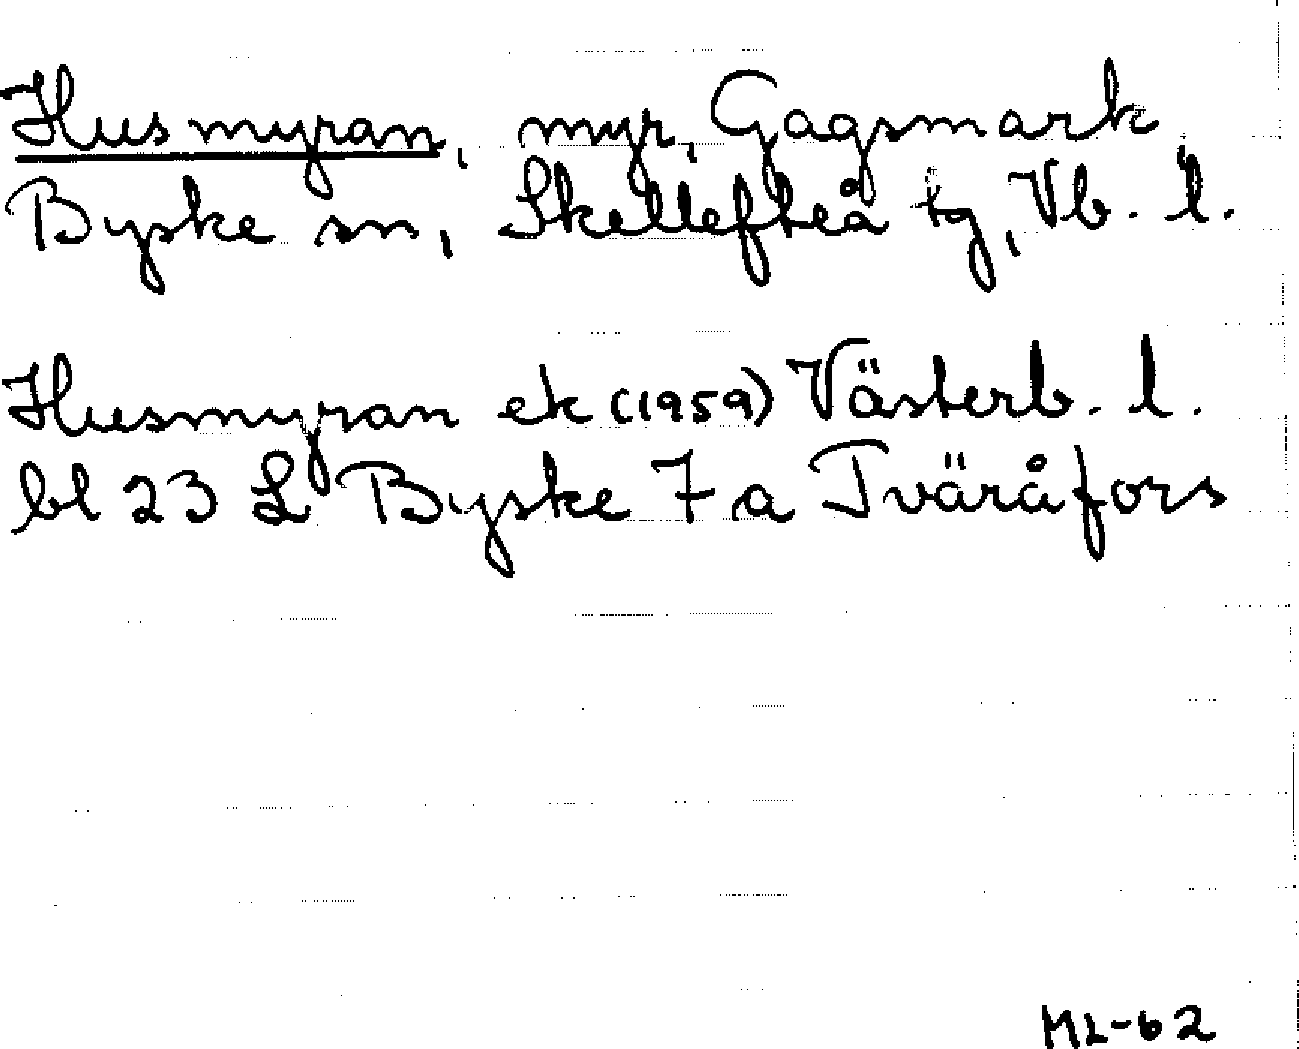 Husmyran, myr, Gagsmark,
Byske sn, Skellefteå tg, Vb. l.
Husmyran ek (1959) Västerb. l.
bl 23 L Byske 7 a Tväråfors
ML-62